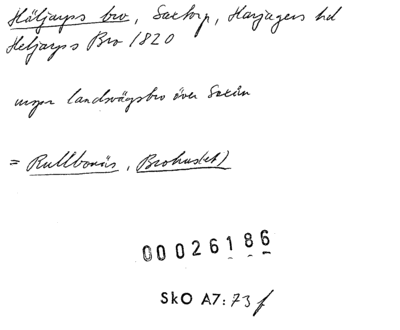 Häljarps bro, Saxtorp, Harjagers hd
Heljarps Bro 1820
landsvägsbro över Saxån
= Rullbonäs, Brohuset)
00026186
SkO A7: 73 f